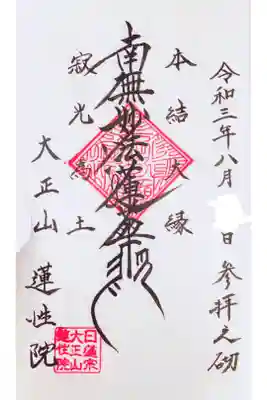 令和三年八月 日 参拝之砌
本結大縁
南無妙法蓮華経
寂光為土
大正山
蓮性院
日蓮宗
大正山
蓮性院